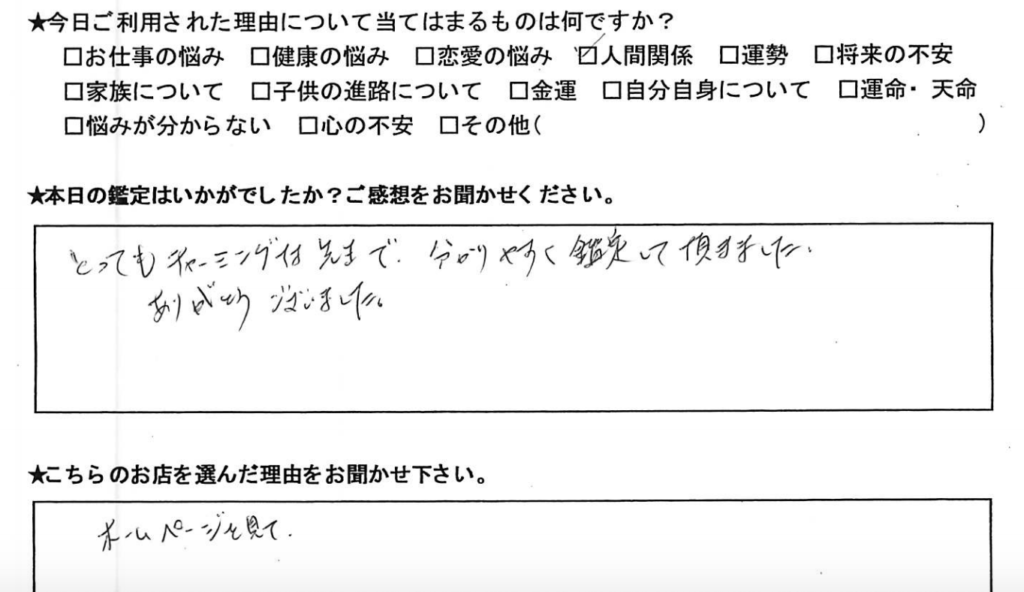 ★今日ご利用された理由について当てはまるものは何ですか？
□お仕事の悩み □健康の悩み □恋愛の悩み ☑人間関係 □運勢 □将来の不安
□家族について □子供の進路について □金運 □自分自身について □運命・天命
□悩みが分からない □心の不安 □その他( )
★本日の鑑定はいかがでしたか？ご感想をお聞かせください。
とってもチャーミングな先生で、分かりやすく鑑定して頂きました。
ありがとうございました。
★こちらのお店を選んだ理由をお聞かせ下さい。
ホームページを見て.